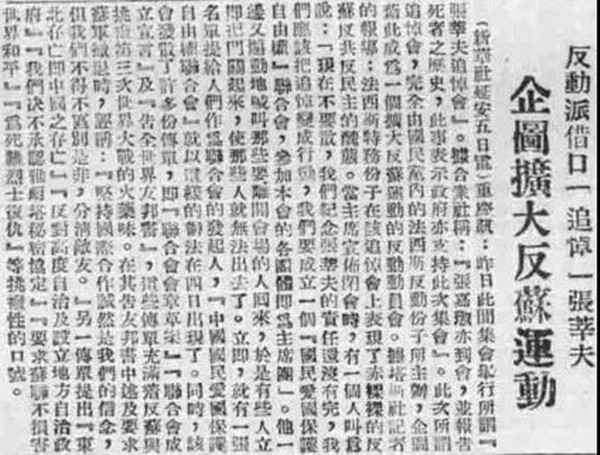 反動派借口「追悼」張莘夫
企圖擴大反蘇運動
(新華社延安五日電)重慶訊:昨日此間集會舉行所謂『
張莘夫追悼會』。據合業社稱:『張嘉璈亦到會,並報告
死者之歷史,此事表示政府亦支持此次集會』。此次所謂
追悼會,完全由國民黨內的法西斯反動份子所主辦,企圖
藉此成爲一個擴大反蘇運動的反動動員會。據塔斯社記者
的報導:法西斯特務份子在該追悼會上表現了赤裸裸的反
蘇反共反民主的醜態。當主席宣佈閉會時,有一個人叫喊
說:『現在不要散,我們紀念張莘夫的責任還沒有完,我
們應該把追悼變成行動,我們要成立一個『國民愛國保護
自由權』聯合會,參加本會的各團體即爲主席團』。他一
邊又煽動地喊叫那些要離開會場的人回來,於是有些人立
即把門關起來,使那些人就無法出去了。立即,就有一張
名單提給人們作爲聯合會的發起人,『中國國民愛國保護
自由權聯合會』就以這樣的辦法在四日出現了。同時,該
會發散了許多份傳單,即『聯合會會章草案』『聯合會成
立宣言』及『告全世界友邦書』,這些傳單充滿着反蘇與
挑撥第三次世界大戰的火藥味。在其告友邦書中述及要求
蘇軍撤退時,誣稱:『堅持國際合作誠然是我們的信念,
但我們不得不別是非,分清敵友。』另一傳單提出『東
北存亡即中國之存亡』『反對高度自治及設立地方自治政
府』『我們决不承認雅爾塔秘密協定』『要求蘇聯不損害
世界和平』『爲死難烈士復仇』等挑撥性的口號。